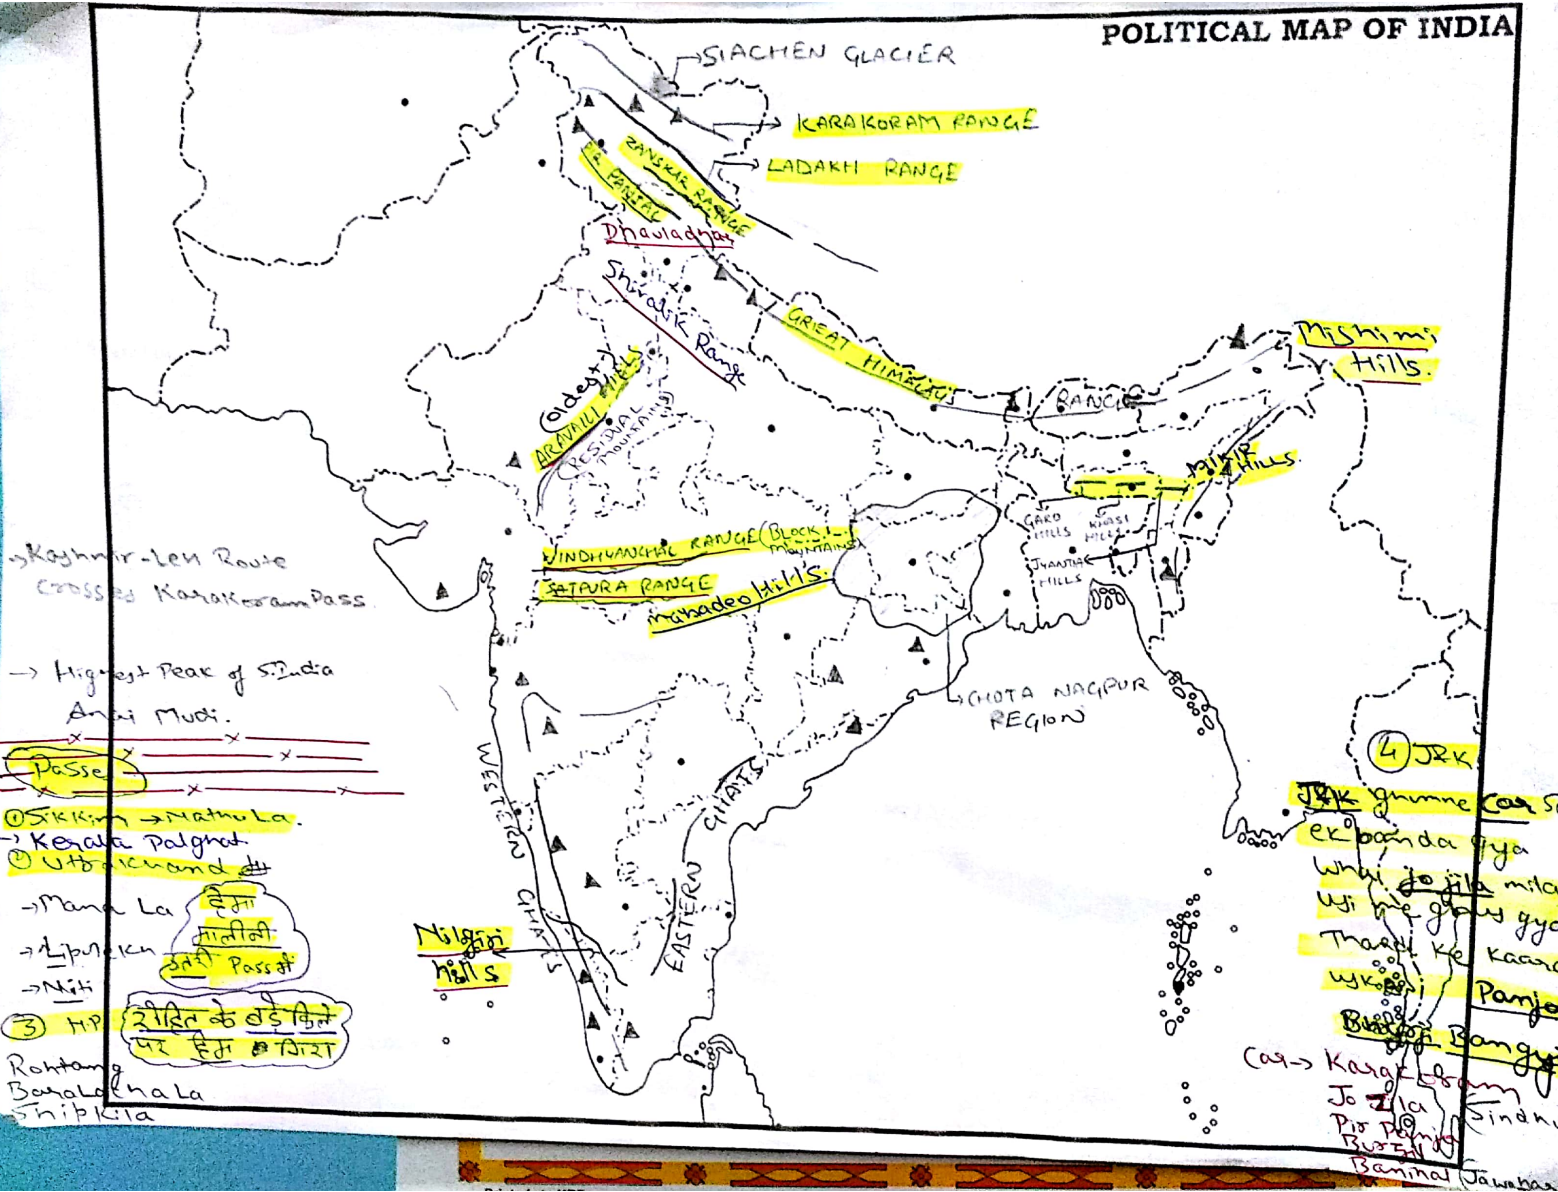 POLITICAL MAP OF INDIA
SIACHEN GLACIER
KARAKORAM RANGE
LADAKH RANGE
ZANSKAR RANGE
PIR PANJAL
Dhauladhar
Shivalik Range
GREAT HIMALAYS
RANGE
Mishimi
Hills.
Oldest
ARAVALLI HILLS
(RESIDUAL
MOUNTAINS)
MIKIR
HILLS.
GARO
HILLS
KHASI
HILLS
JYANTIA
HILLS
VINDHYANCHAL RANGE (BLOCK
MOUNTAINS)
SATPURA RANGE
Mahadeo Hill's.
CHOTA NAGPUR
REGION
WESTERN GHATS
EASTERN GHATS
Nilgiri
hills
→Kashmir-Leh Route
Crosses KarakoramPass.
→ Highest Peak of S.India
Anai Mudi.
Passe
① Sikkim → Nathu La.
→ Kerala Palghat.
② Uttrakhand
→Mana La
→Lipulekh
→Niti
हेमा
मालीनी
Pass में
③ H.P.
रोहित के बड़े किले
पर हिम गिरा
Rohtang
BaraLachaLa
Shipkila
④ J&K
J&K ghumne car
ek banda gya
Whai jo jila
Thand ke
Panj
Car→ Karakoram
Jo Zila
Pir Panja
Burzil
Banihal (Jawahar